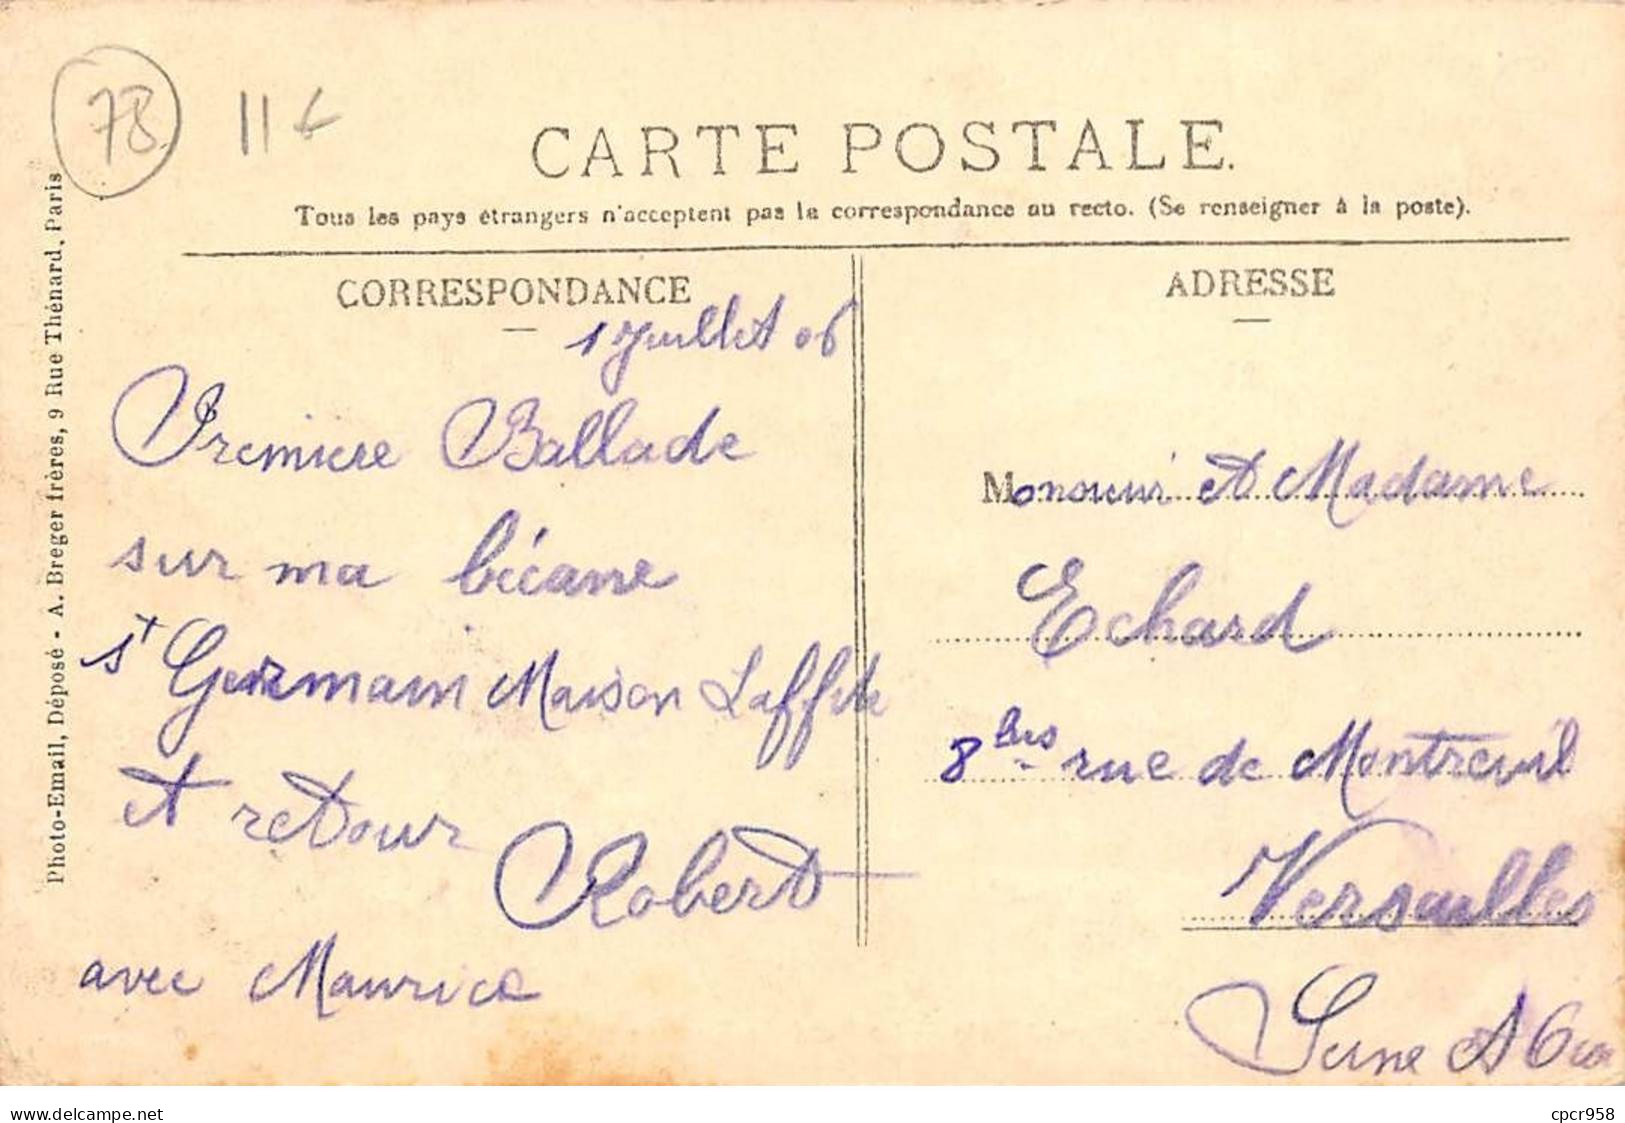 78 11€
CARTE POSTALE.
Tous les pays étrangers n'acceptent pas la correspondance au recto. (Se renseigner à la poste).
CORRESPONDANCE
1 Juillet 06
Premiere Ballade
sur ma bécane
St Germain Maison Laffite
et retour
Robert
avec Maurice
ADRESSE
Monsieur et Madame
Echard
8 bis rue de Montreuil
Versailles
Seine et Oise
Photo-Email, Déposé - A. Breger frères, 9 Rue Thénard, Paris
www.delcampe.net
cpcr958